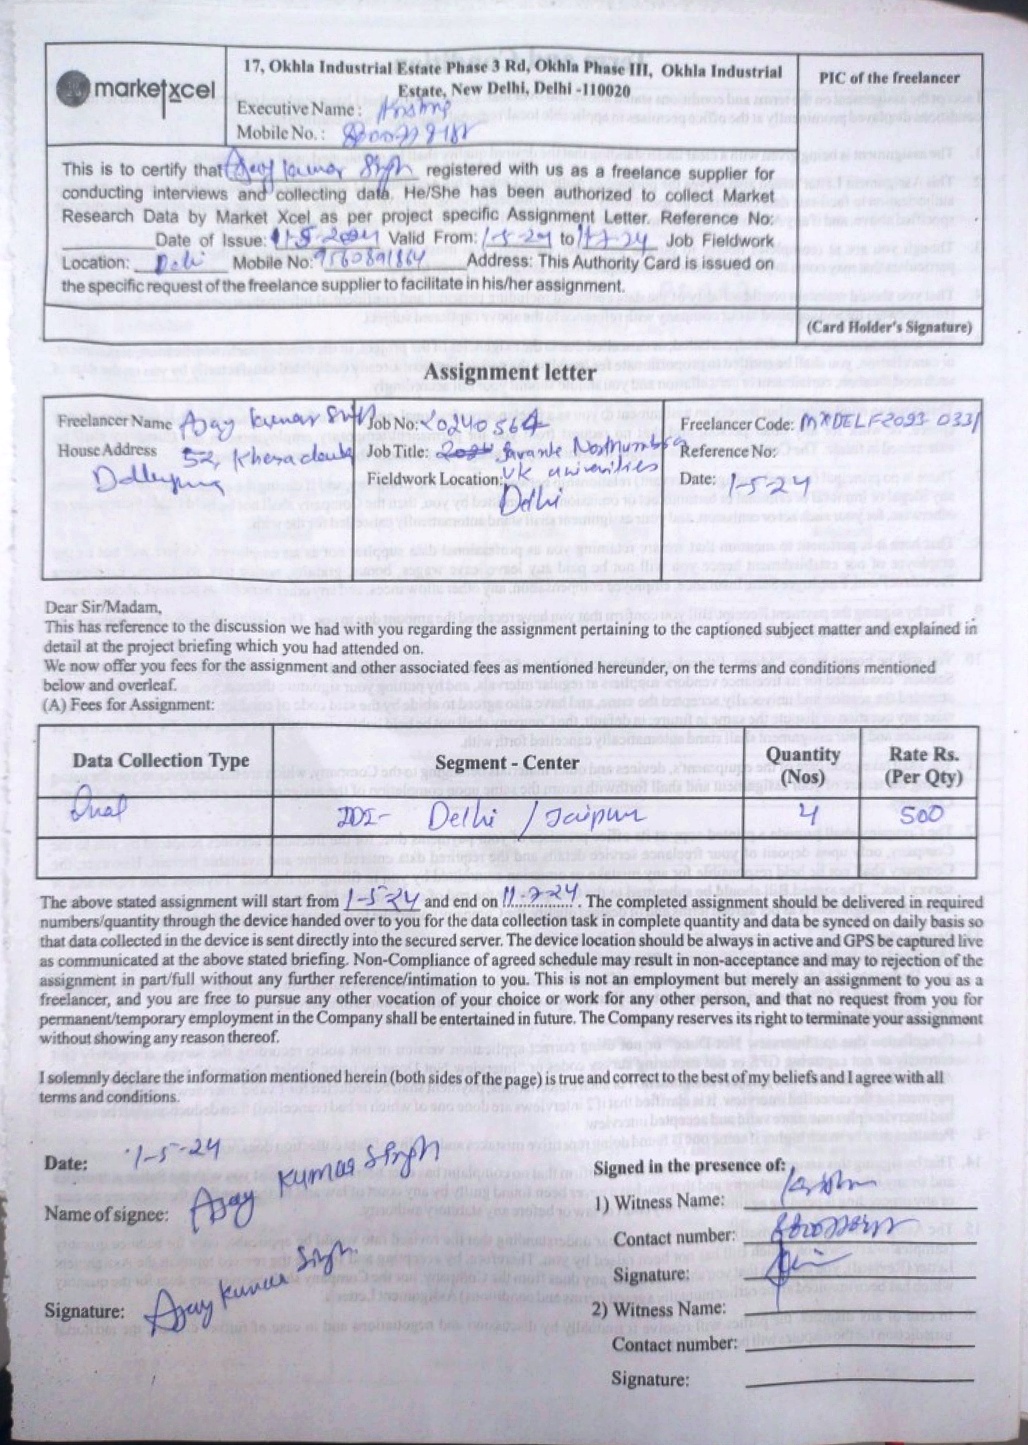 marketxcel
17, Okhla Industrial Estate Phase 3 Rd, Okhla Phase III, Okhla Industrial
Estate, New Delhi, Delhi -110020
Executive Name :
Mobile No. :
PIC of the freelancer
This is to certify that Ajay Kumar Singh registered with us as a freelance supplier for
conducting interviews and collecting data. He/She has been authorized to collect Market
Research Data by Market Xcel as per project specific Assignment Letter. Reference No:
Date of Issue: 1-5-2024 Valid From: 1-5-24 to 11-7-24 Job Fieldwork
Location: Delhi Mobile No: 9560891864 Address: This Authority Card is issued on
the specific request of the freelance supplier to facilitate in his/her assignment.
(Card Holder's Signature)
Assignment letter
Freelancer Name Ajay Kumar Singh
House Address 52, Khera
Job No: 20240564
Job Title:
UK universities
Fieldwork Location:
Delhi
Freelancer Code: MXDELF2093 0331
Reference No:
Date: 1-5-24
Dear Sir/Madam,
This has reference to the discussion we had with you regarding the assignment pertaining to the captioned subject matter and explained in
detail at the project briefing which you had attended on.
We now offer you fees for the assignment and other associated fees as mentioned hereunder, on the terms and conditions mentioned
below and overleaf.
(A) Fees for Assignment:
Data Collection Type Segment - Center Quantity (Nos) Rate Rs. (Per Qty)
Qual IDI- Delhi / Jaipur 4 500
The above stated assignment will start from 1-5-24 and end on 11-7-24. The completed assignment should be delivered in required
numbers/quantity through the device handed over to you for the data collection task in complete quantity and data be synced on daily basis so
that data collected in the device is sent directly into the secured server. The device location should be always in active and GPS be captured live
as communicated at the above stated briefing. Non-Compliance of agreed schedule may result in non-acceptance and may to rejection of the
assignment in part/full without any further reference/intimation to you. This is not an employment but merely an assignment to you as a
freelancer, and you are free to pursue any other vocation of your choice or work for any other person, and that no request from you for
permanent/temporary employment in the Company shall be entertained in future. The Company reserves its right to terminate your assignment
without showing any reason thereof.
I solemnly declare the information mentioned herein (both sides of the page) is true and correct to the best of my beliefs and I agree with all
terms and conditions.
Date: 1-5-24
Name of signee: Ajay Kumar Singh
Signature: Ajay Kumar Singh
Signed in the presence of:
1) Witness Name:
Contact number:
Signature:
2) Witness Name:
Contact number:
Signature: